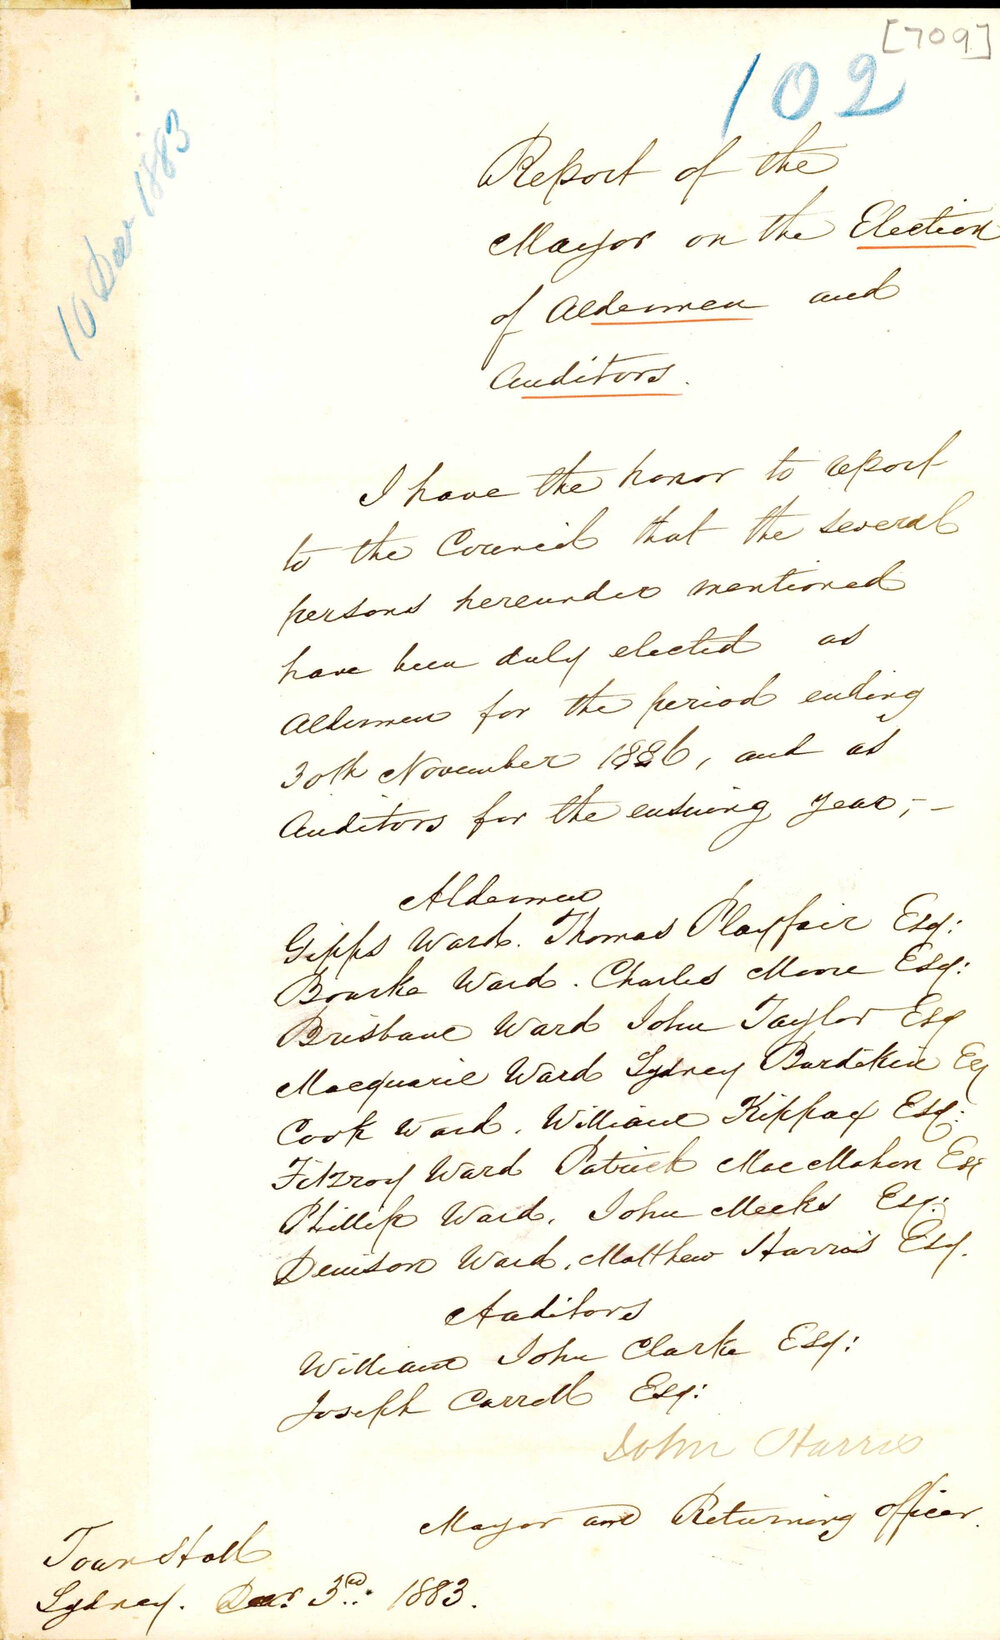 [709]
102
10 Decr 1883
Report of the
Mayor on the Election
of Aldermen and
Auditors.
I have the honor to report
to the Council that the several
persons hereunder mentioned
have been duly elected as
Aldermen for the period ending
30th November 1886, and as
Auditors for the ensuing year;-
Aldermen
Gipps Ward. Thomas Playfair Esq:
Bourke Ward. Charles Moore Esq:
Brisbane Ward John Taylor Esq
Macquarie Ward Sydney Burdekin Esq
Cook Ward. William Kippax Esq:
Fitzroy Ward Patrick MacMahon Esq
Phillip Ward. John Meeks Esq:
Denison Ward. Matthew Harris Esq.
Auditors
William John Clarke Esq:
Joseph Carroll Esq:
John Harris
Mayor and Returning Officer.
Town Hall
Sydney. Decr. 3rd: 1883.